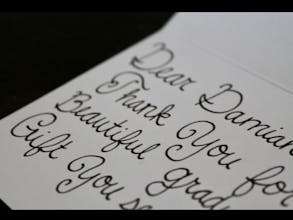 Dear Damian
Thank You for
Beautiful
Gift You